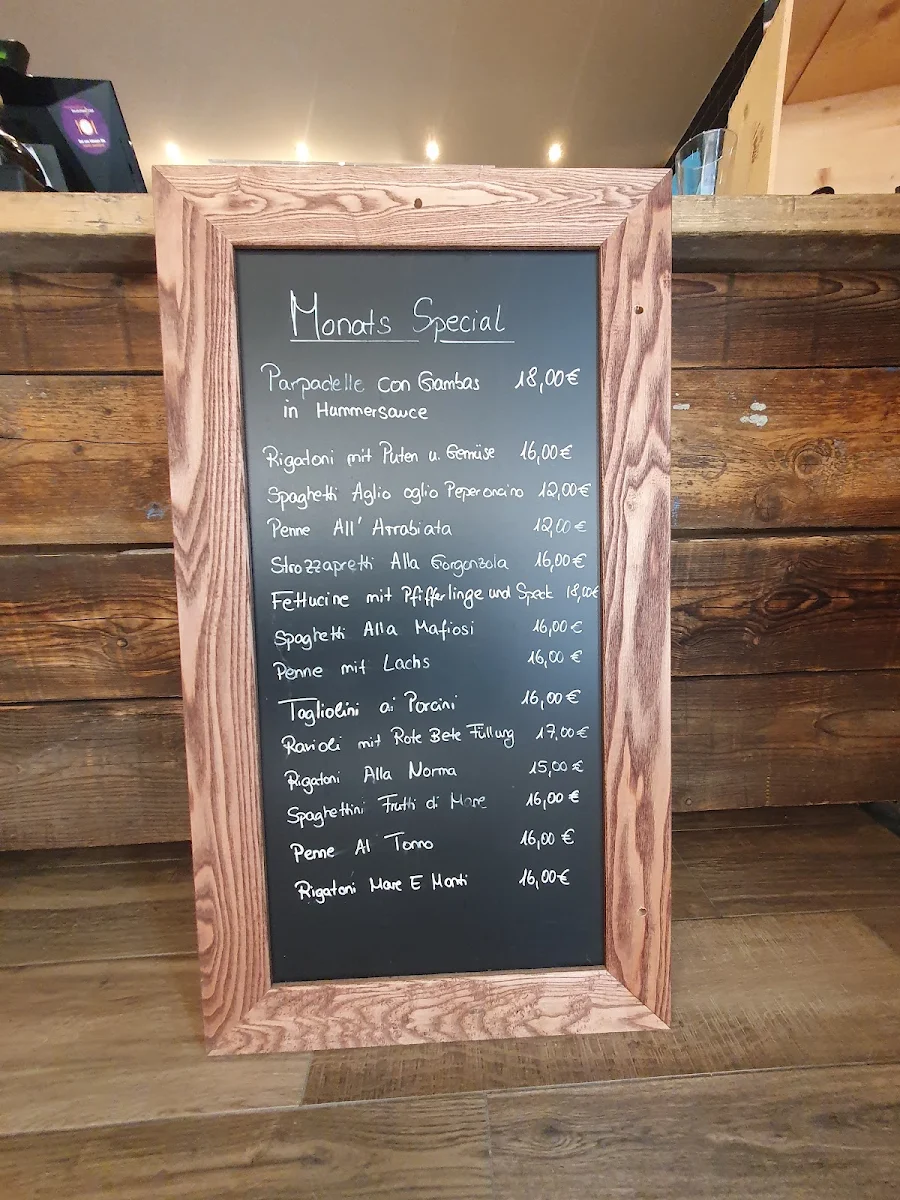 Monats Special
Parpadelle con Gambas 18,00€
in Hummersauce
Rigatoni mit Puten u. Gemüse 16,00€
Spaghetti Aglio oglio Peperoncino 12,00€
Penne All' Arrabiata 12,00€
Strozzapretti Alla Gorgonzola 16,00€
Fettucine mit Pfifferlinge und Speck 18,00€
Spaghetti Alla Mafiosi 16,00€
Penne mit Lachs 16,00 €
Tagliolini ai Porcini 16,00€
Ravioli mit Rote Bete Füllung 17,00€
Rigatoni Alla Norma 15,00€
Spaghettini Frutti di Mare 16,00€
Penne Al Tonno 16,00 €
Rigatoni Mare E Monti 16,00€